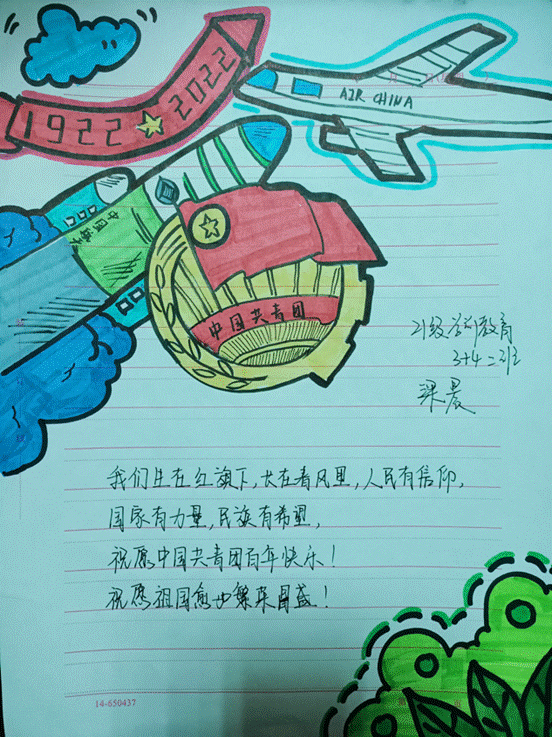 1922 2022
AIR CHINA
中国
中国共青团
21级学前教育
3+4二班
梁晨
我们生在红旗下,长在春风里,人民有信仰,
国家有力量,民族有希望,
祝愿中国共青团百年快乐!
祝愿祖国愈也繁荣昌盛!
14-650437